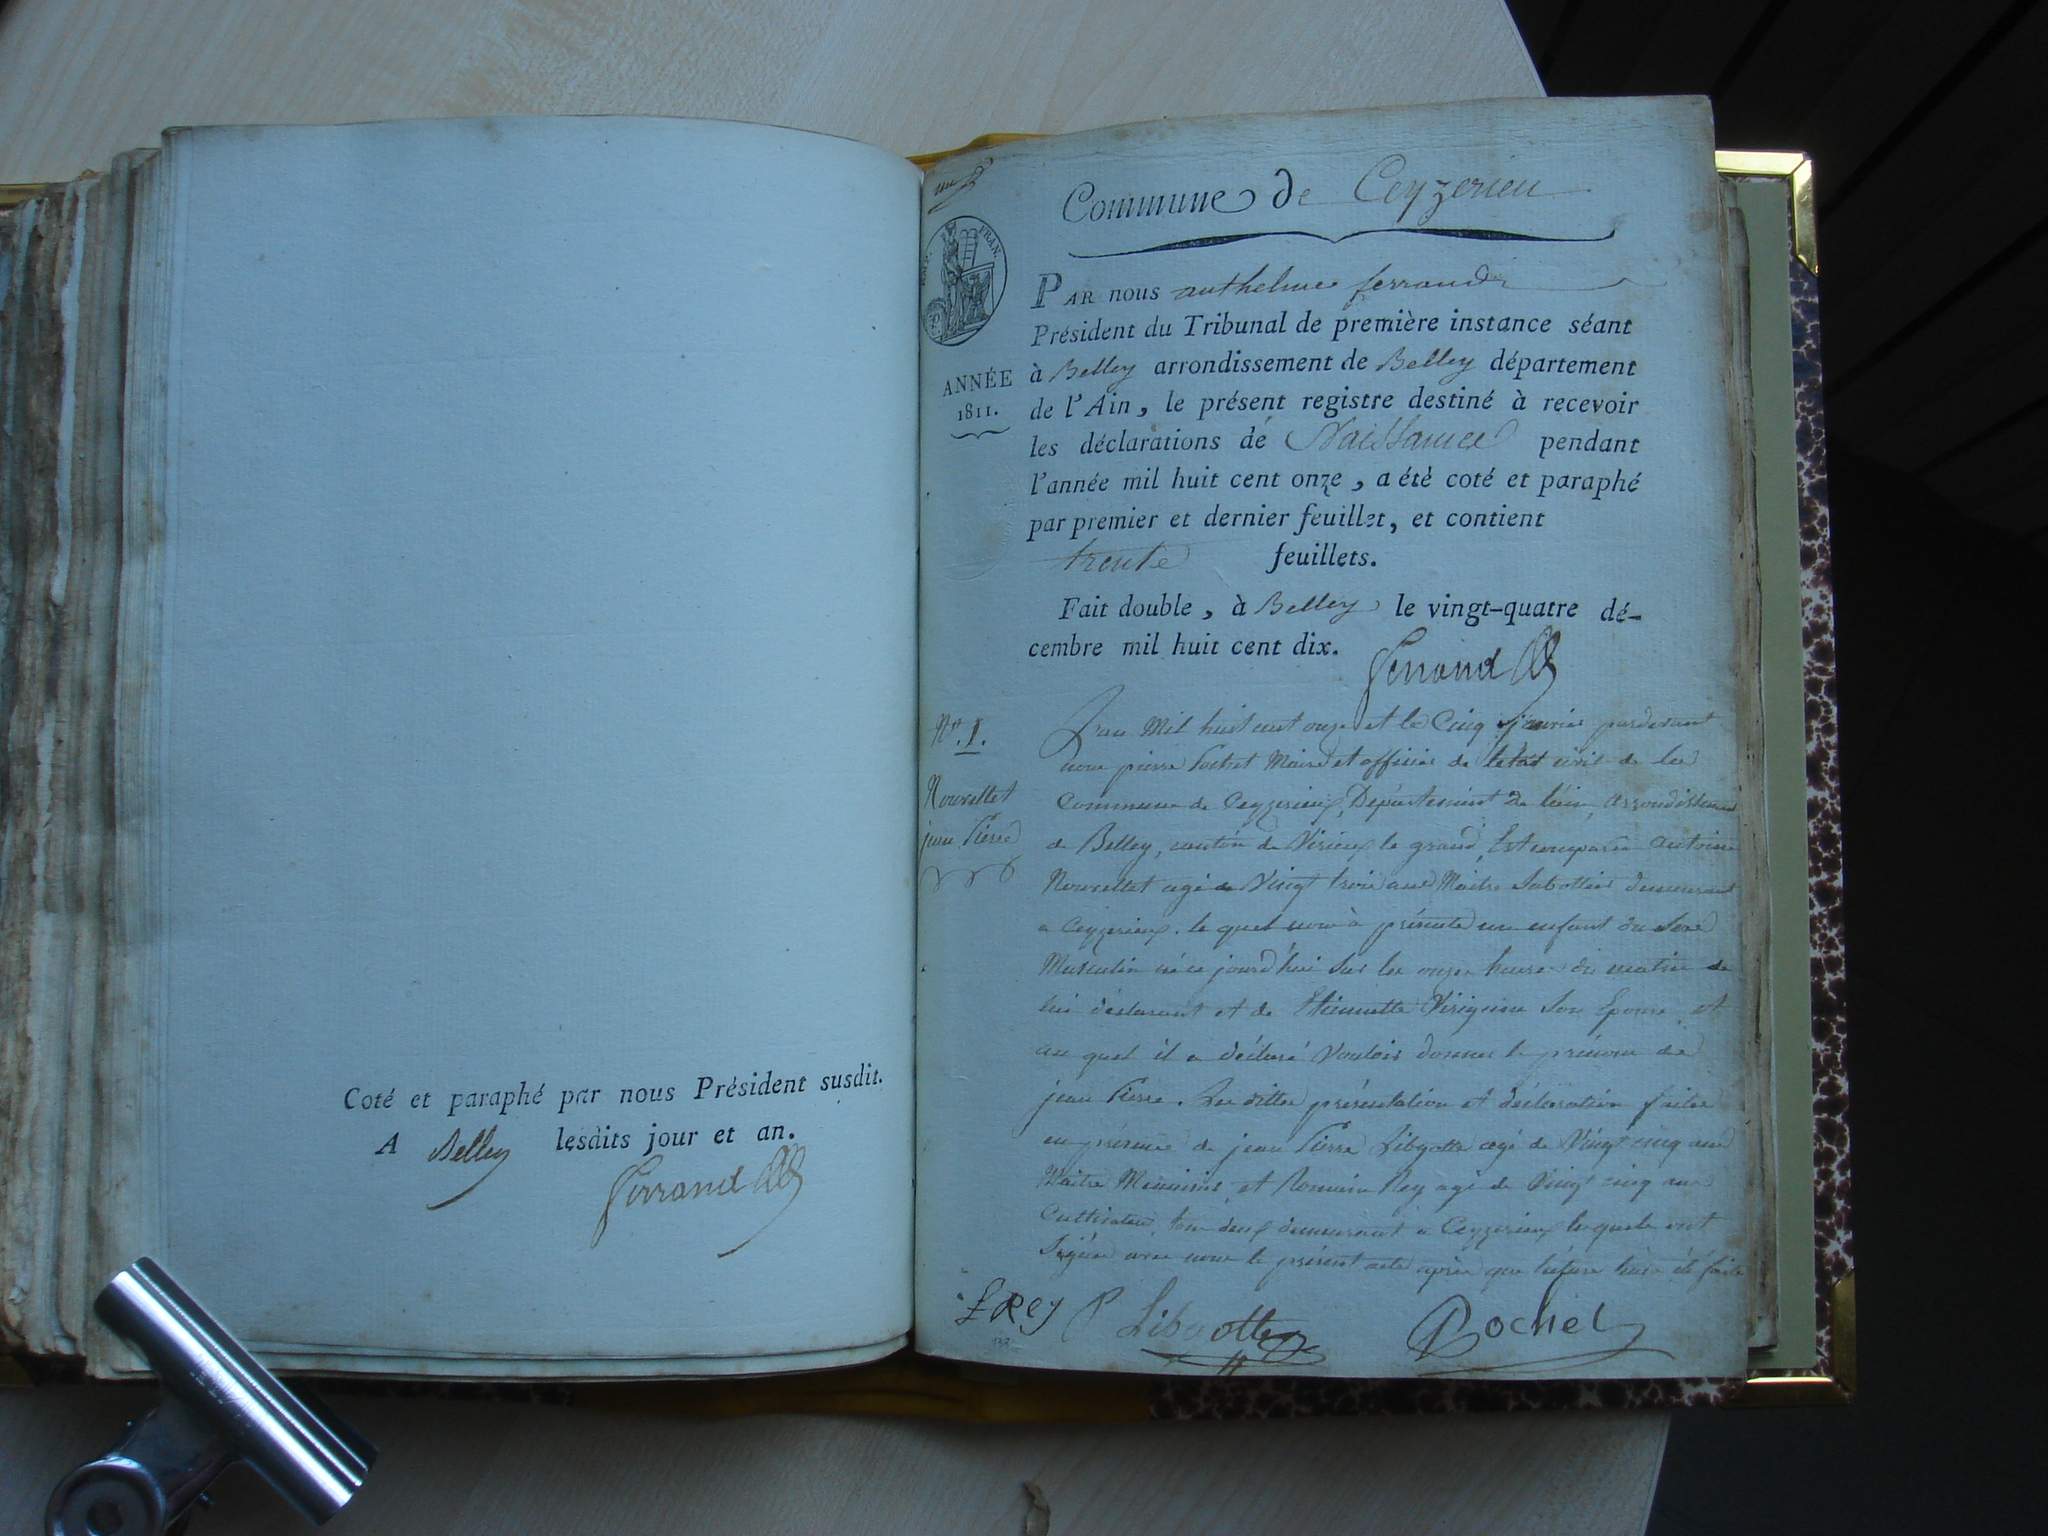 Coté et paraphé par nous Président susdit.
A Belley lesdits jour et an.
Ferrand
un
Commune de Ceyzerieu
EMP. FRAN.
ANNÉE
1811.
PAR nous anthelme ferrand
Président du Tribunal de première instance séant
à Belley arrondissement de Belley département
de l'Ain, le présent registre destiné à recevoir
les déclarations de Naissance pendant
l'année mil huit cent onze, a été coté et paraphé
par premier et dernier feuillet, et contient
trente feuillets.
Fait double, à Belley le vingt-quatre dé-
cembre mil huit cent dix.
Ferrand
N.º 1.
Nouvellet
jean Pierre
L'an Mil huit cent onze et le Cinq janvier pardevant
nous pierre Pochet Maire et officier de l'etat civil de la
Commune de Ceyzerieux, Departement de l'ain, arrondissement
de Belley, canton de Virieux le grand, Est comparu Antoine
Nouvellet agé de Vingt trois ans Maitre Sabottier demeurant
a Ceyzerieux. le quel nous à présenté un enfant du Sexe
Masculin né ce jourd'hui sur les onze heures du matin de
lui déclarant et de Etiennette Virignin Son Epouse et
au quel il a déclaré Vouloir donner le prénom de
jean Pierre. Les dittes présentation et déclaration faites
en présence de jean Pierre Libyotte agé de Vingt cinq ans
Maitre Menuisier, et Romain Rey agé de Vingt cinq ans
Cultivateur, tous deux demeurant a Ceyzerieux lesquels ont
Signé avec nous le présent acte après que lecture leur à été faite
Rey P Libyotte Pochet